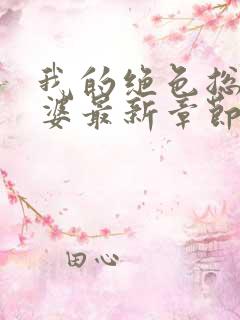 我的绝色总
婆最新章节
田心